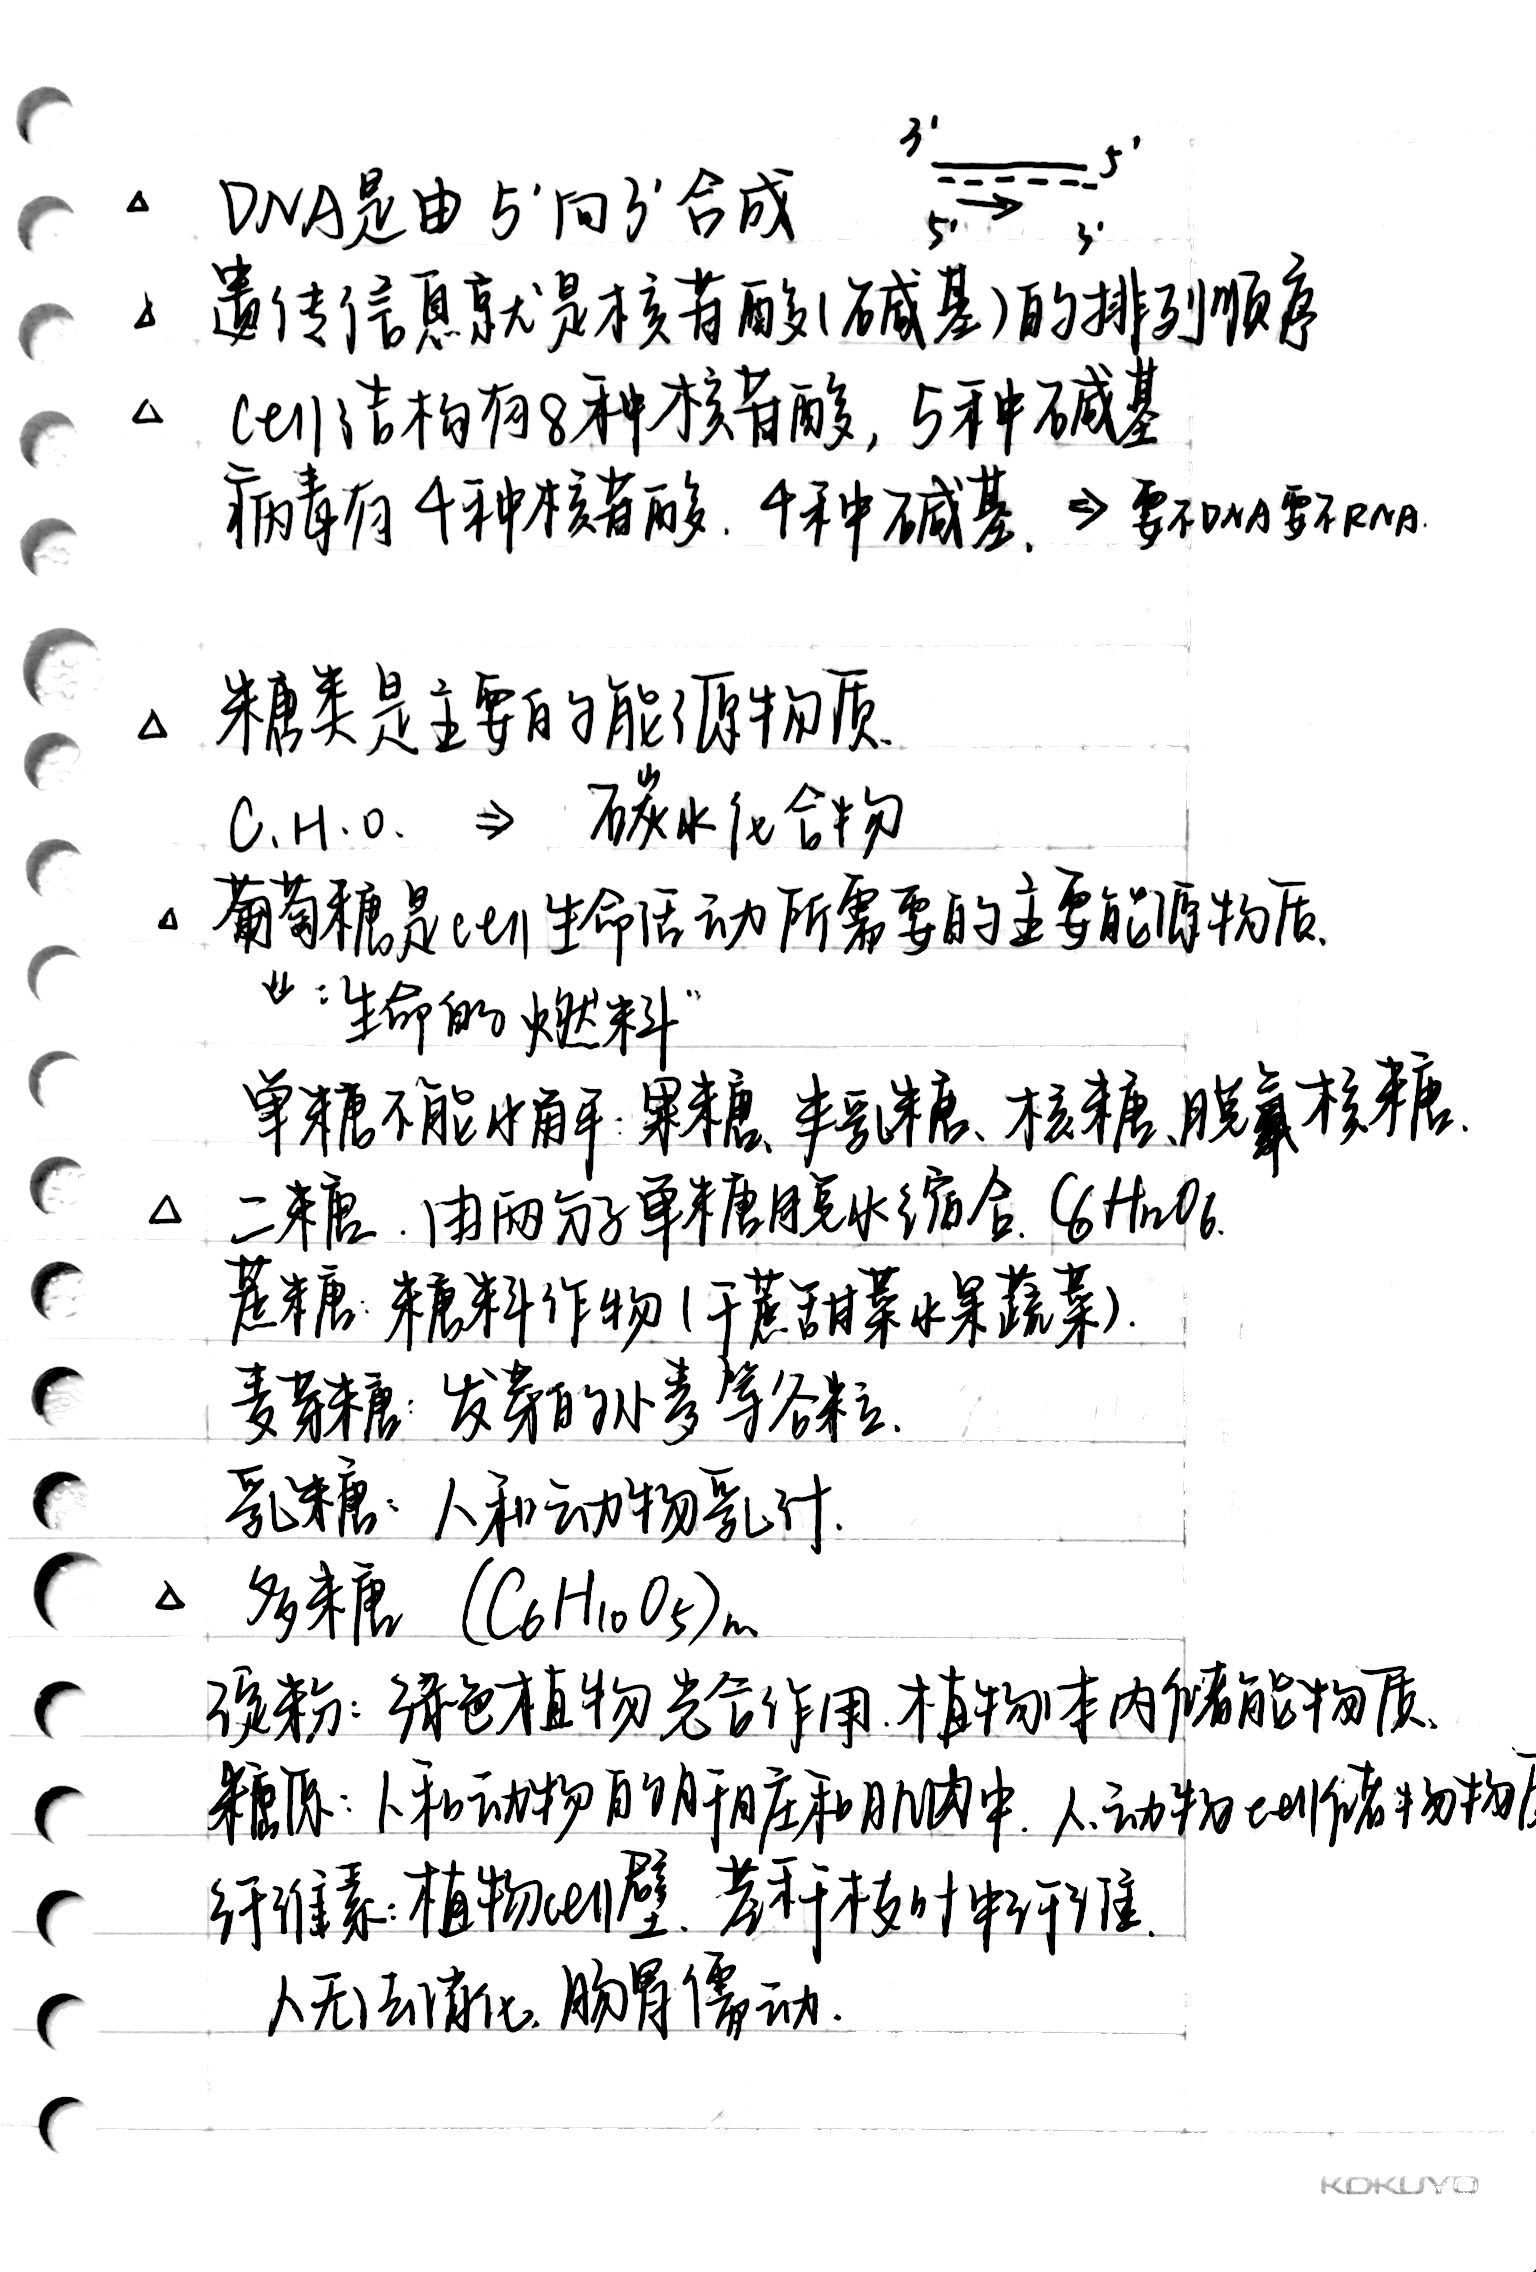 3' 5'
△ DNA是由5'向3'合成
5' → 3'
△ 遗传信息就是核苷酸(碱基)的排列顺序
△ cell结构有8种核苷酸, 5种碱基
病毒有4种核苷酸. 4种碱基. ⇒ 要不DNA要不RNA.
△ 糖类是主要的能源物质.
C.H.O. ⇒ 碳水化合物
△ 葡萄糖是cell生命活动所需要的主要能源物质.
⇓ : 生命的燃料"
单糖不能水解: 果糖、半乳糖、核糖、脱氧核糖.
△ 二糖. 由两分子单糖脱水缩合. C6H12O6.
蔗糖: 糖料作物(干蔗甜菜水果蔬菜).
麦芽糖: 发芽的小麦等谷粒.
乳糖: 人和动物乳汁.
△ 多糖 (C6H10O5)n
淀粉: 绿色植物光合作用. 植物体内储能物质.
糖原: 人和动物的肝脏和肌肉中. 人、动物cell储物物质
纤维素: 植物cell壁. 茎秆枝叶中纤维.
人无法消化. 肠胃儒动.
KOKUYO